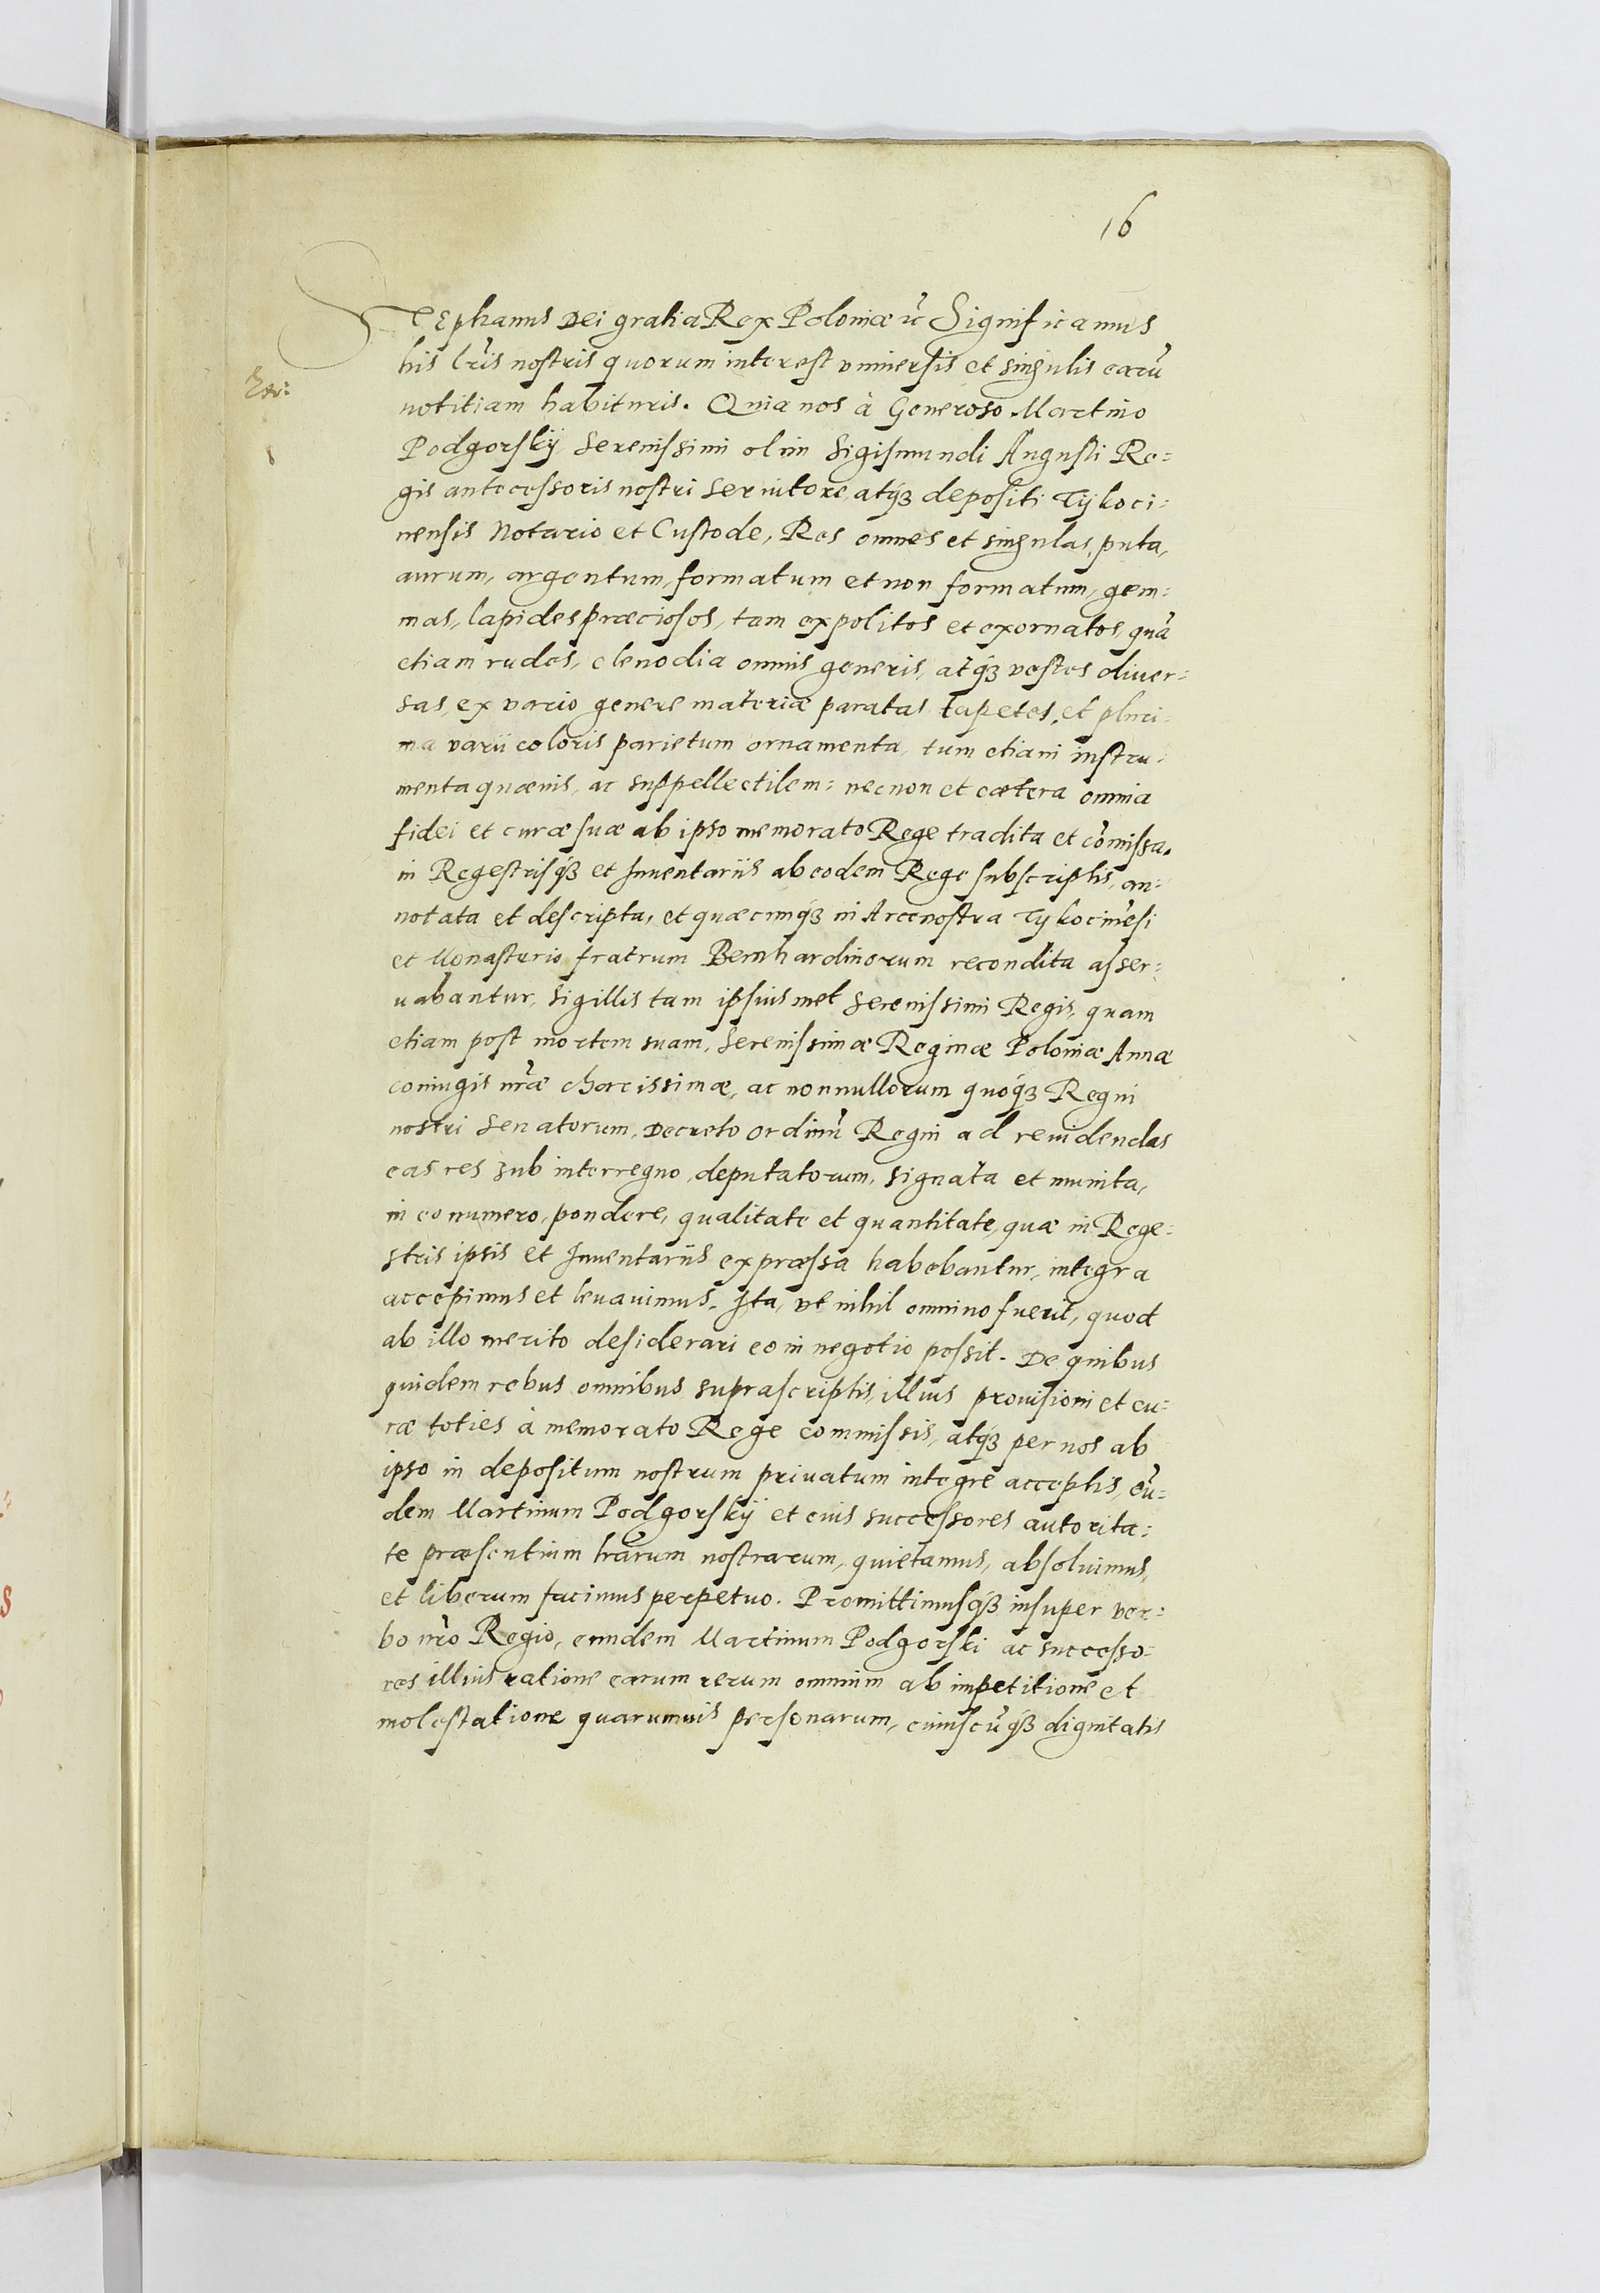 16
Stephanus Dei gratia Rex Poloniæ ꝛc̃ Significamus
his lr̃is nostris quorum interest vniuersis et singulis earũ
notitiam habituris. Quia nos à Generoso Martino
Podgorskÿ Serenissimi olim Sigismundi Augusti Re=
gis antecessoris nostri Seruitore atq́ꝫ depositi Tÿkoci=
nensis Notario et Custode, Res omnes et singulas, puta,
aurum, argentum, formatum et non formatum, gem=
mas, lapides præciosos, tam expolitos et exornatos, quã
etiam rudes, clenodia omnis generis, atq́ꝫ vestes diuer=
sas, ex vario genere materiæ paratas tapetes, et pluri=
ma varii coloris parietum ornamenta, tum etiam instru=
menta quæuis, ac suppellectilem: necnon et cætera omnia
fidei et curæ suæ ab ipso memorato Rege tradita et cõmissa,
in Regestrisq́ꝫ et Inuentariis ab eodem Rege subscriptis, an=
notata et descripta, et quæcunq́ꝫ in Arce nostra Tykocinẽsi
et Monasterio fratrum Bernhardinorum recondita asser=
uabantur, sigillis tam ipsius met Serenissimi Regis, quam
etiam post mortem suam, Serenissimæ Reginæ Poloniæ Annæ
coniugis nr̃æ charissimæ, ac nonnullorum quoq́ꝫ Regni
nostri Senatorum, Decreto ordinũ Regni ad reuidendas
eas res sub interregno, deputatorum, signata et munita,
in eo numero, pondere, qualitate et quantitate, quæ in Rege=
stris ipsis et Inuentariis expræssa habebantur, integra
accepimus et leuauimus. Ita, vt nihil omnino fuerit, quod
ab illo merito desiderari eo in negotio possit. De quibus
quidem rebus omnibus suprascriptis, illius prouisioni et cu=
ræ toties à memorato Rege commissis, atq́ꝫ per nos ab
ipso in depositum nostrum priuatum integrè acceptis, eũ=
dem Martinum Podgorskÿ et eius successores autorita=
te præsentium lr̃arum nostrarum, quietamus, absoluimus,
et liberum facimus perpetuo. Promittimusq́ꝫ insuper ver=
bo nr̃o Regio, eundem Martinum Podgorski ac successo=
res illius ratione earum rerum omnium ab impetitione et
molestatione quarumuis personarum, cuiuscũq́ꝫ dignitatis